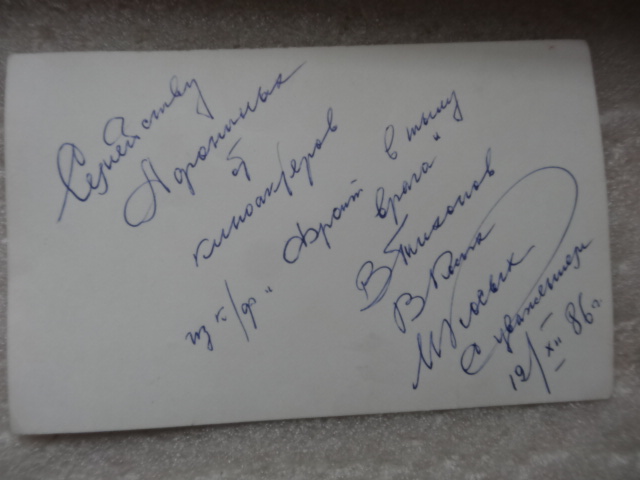 Семейству
Афониных
от
киноактёров
из к/ф "Фронт в тылу
врага"
В Тихонов
В
М Косых
С уважением
19/XII 86 г.